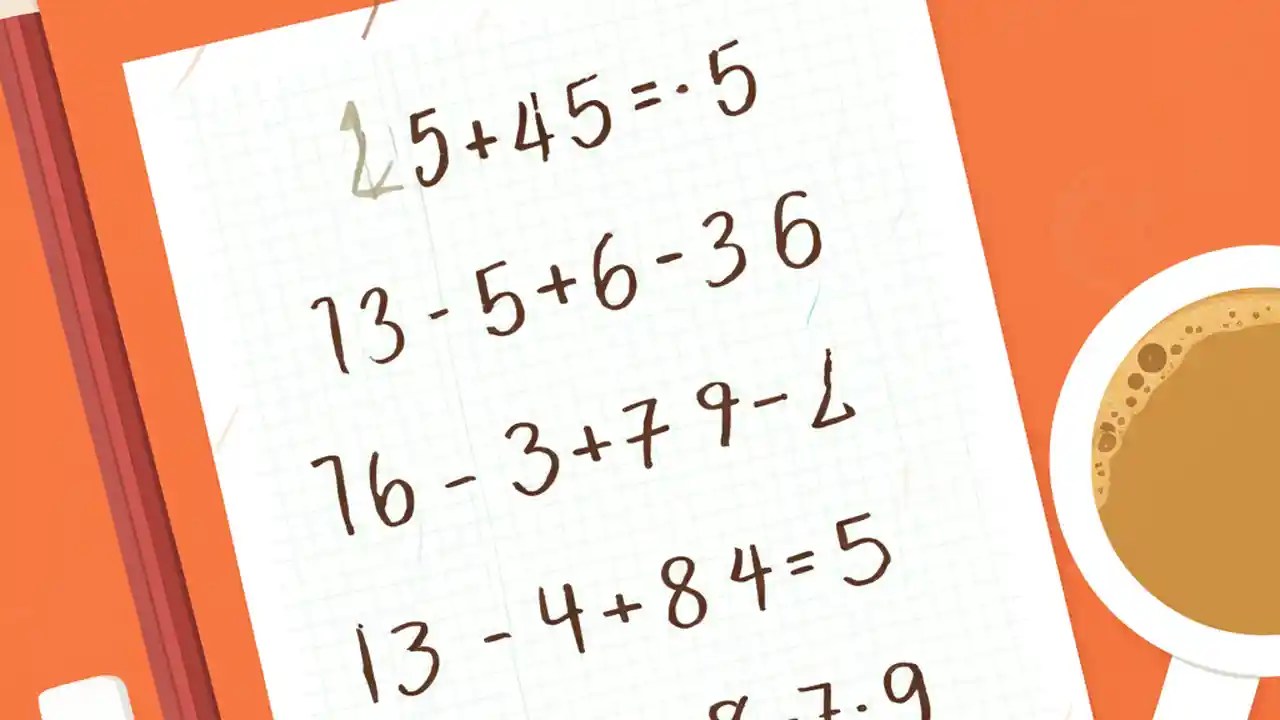 5+45=·5
13-5+6-36
76-3+79-
13-4+84=5
7·9